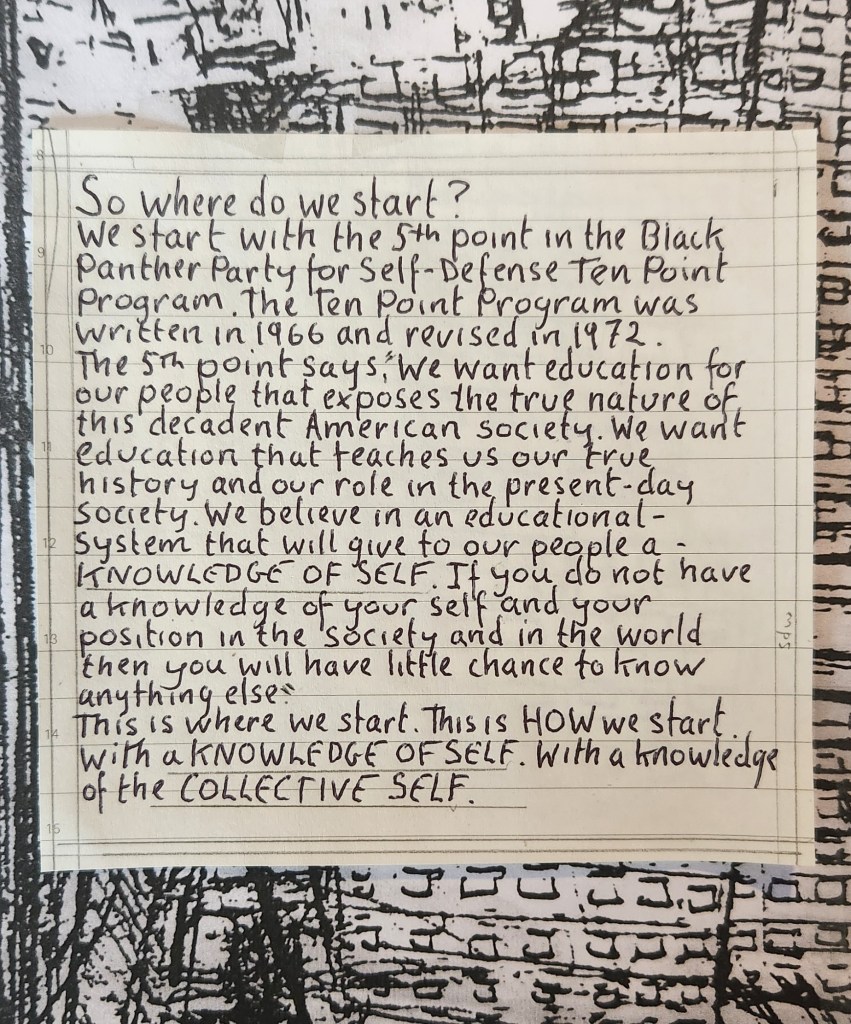 So where do we start?
We start with the 5th point in the Black
Panther Party for Self-Defense Ten Point
Program. The Ten Point Program was
written in 1966 and revised in 1972.
The 5th point says, "We want education for
our people that exposes the true nature of
this decadent American society. We want
education that teaches us our true
history and our role in the present-day
society. We believe in an educational-
system that will give to our people a -
KNOWLEDGE OF SELF. If you do not have
a knowledge of your self and your
position in the society and in the world
then you will have little chance to know
anything else."
This is where we start. This is HOW we start.
With a KNOWLEDGE OF SELF. With a knowledge
of the COLLECTIVE SELF.
8
9
10
11
12
13
14
15